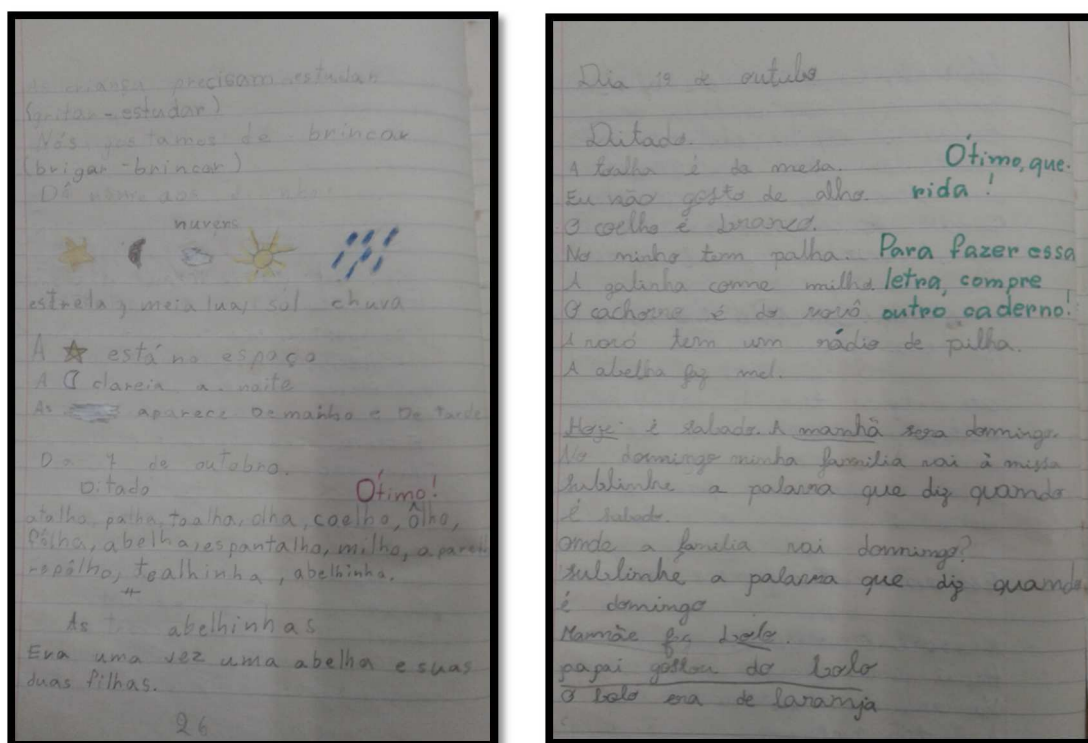 As criança precisam estudar
(gritar - estudar)
Nós gostamos de brincar
(brigar - brincar)
Dê nome aos
nuvens
estrela, meia lua, sol chuva
A está no espaço
A clareia a noite
As aparece De manhã e De tarde
Dia 7 de outubro.
Ditado
Ótimo!
atalho, palha, toalha, olha, coelho, ôlho,
fôlha, abelha, espantalho, milho,
repôlho, toalhinha, abelhinha.
As abelhinhas
Era uma vez uma abelha e suas
duas filhas.
26
Dia 19 de outubo
Ditado.
A toalha é da mesa.
Ótimo, que-
Eu não gosto de alho.
rida!
O coelho é branco.
No ninho tem palha.
Para fazer essa
A galinha come milho.
letra, compre
O cachorro é do vovô
outro caderno!
A vovó tem um rádio de pilha.
A abelha faz mel.
Hoje é sabado. A manhã sera domingo.
No domingo minha familia vai à missa
sublinhe a palavra que diz quando
é sabado.
onde a familia vai domingo?
sublinhe a palavra que diz quando
é domingo
Mamãe fez bolo.
papai gostou do bolo
O bolo era de laranja